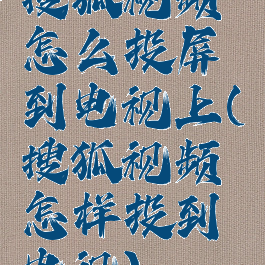 搜狐视频
怎么投屏
到电视上(
搜狐视频
怎样投到
电视)